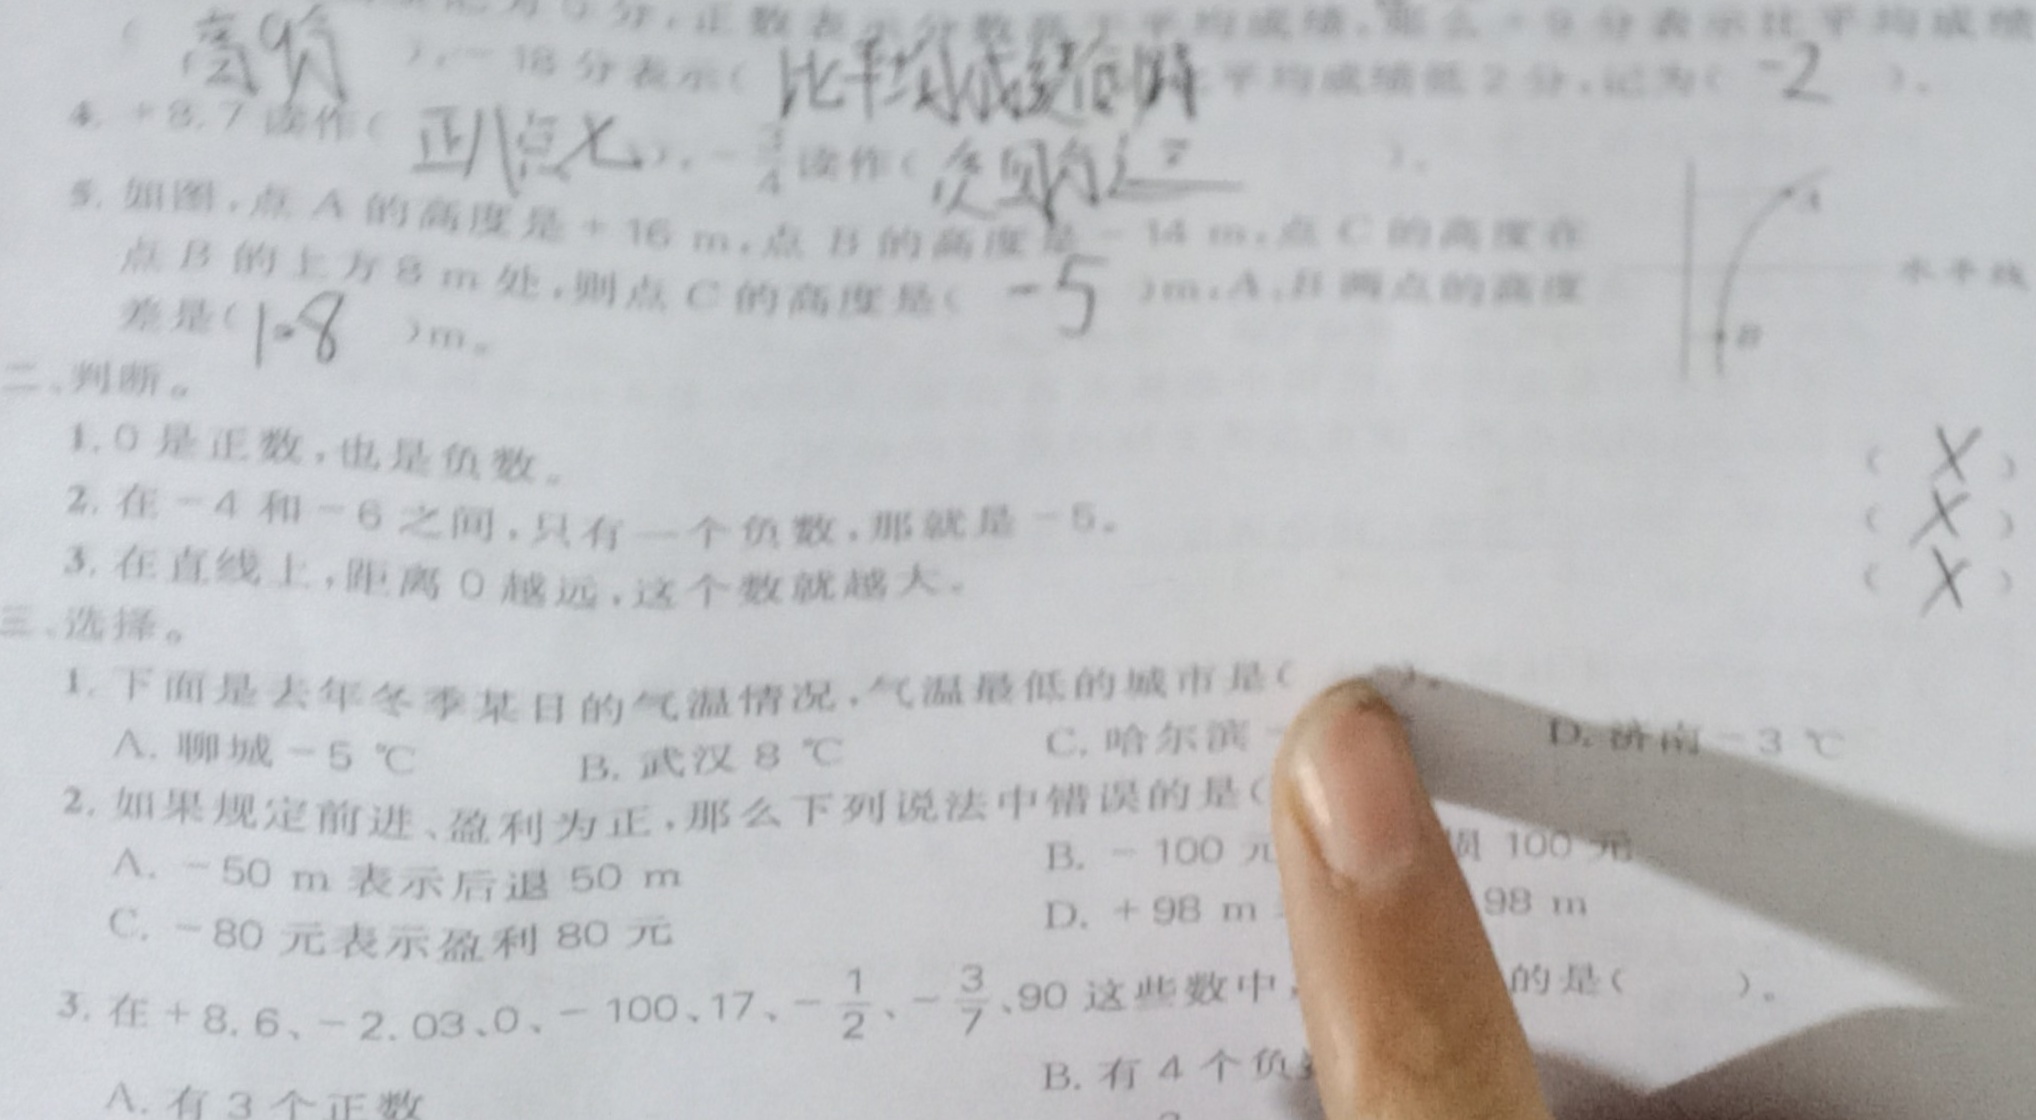 分,正数表示分数高于平均成绩,那么+9分表示比平均成绩
(高9分),-18分表示(比平均成绩低18分 平均成绩低2分,记为(-2)。
4. +8.7读作(正八点七),-3/4读作(负四分之三)。
5. 如图,点A的高度是+16 m,点B的高度是-14 m,点C的高度在
点B的上方8 m处,则点C的高度是(-5)m,A、B两点的高度
差是(1.8)m。
A
水平线
B
二、判断。
1. 0是正数,也是负数。(X)
2. 在-4和-6之间,只有一个负数,那就是-5。(X)
3. 在直线上,距离0越远,这个数就越大。(X)
三、选择。
1. 下面是去年冬季某日的气温情况,气温最低的城市是( )。
A. 聊城-5 ℃ B. 武汉8 ℃ C. 哈尔滨- D. 济南-3 ℃
2. 如果规定前进、盈利为正,那么下列说法中错误的是(
A. -50 m表示后退50 m B. -100元 损100元
C. -80元表示盈利80元 D. +98 m 98 m
3. 在+8.6、-2.03、0、-100、17、-1/2、-3/7、90这些数中, 的是( )。
A. 有3个正数 B. 有4个负